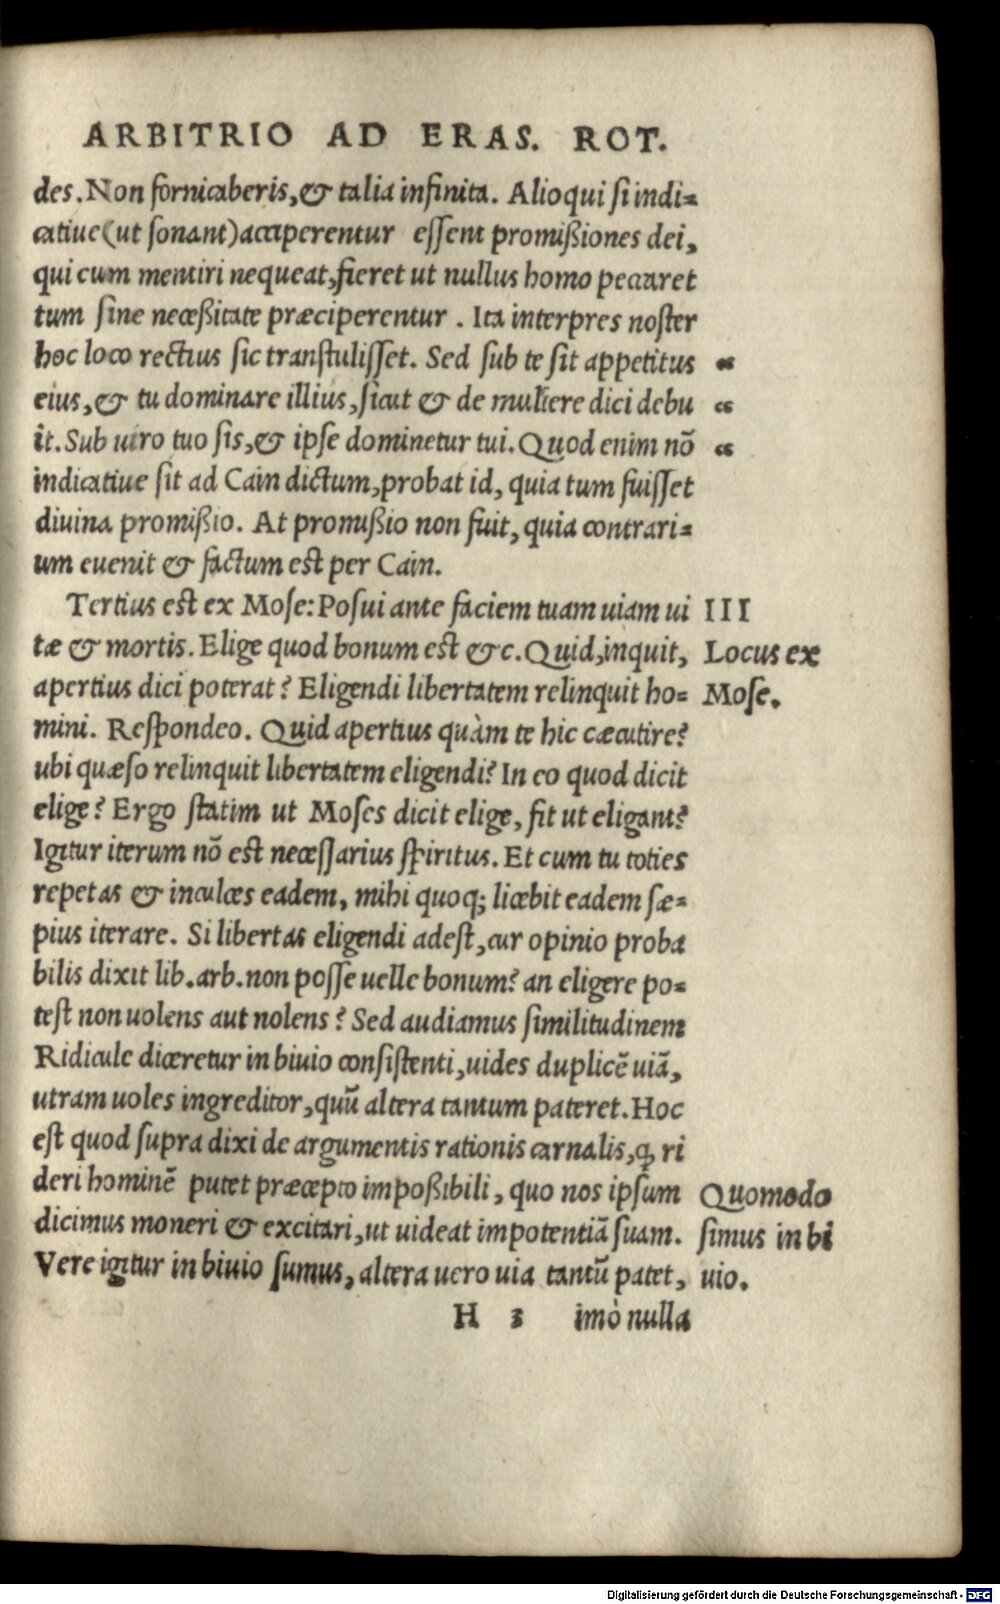 ARBITRIO AD ERAS. ROT.
des. Non fornicaberis, & talia infinita. Alioqui si indi=
catiue (ut sonant) acciperentur essent promißiones dei,
qui cum mentiri nequeat, fieret ut nullus homo peccaret
tum sine neceßitate præciperentur. Ita interpres noster
hoc loco rectius sic transtulisset. Sed sub te sit appetitus “
eius, & tu dominare illius, sicut & de muliere dici debu “
it. Sub uiro tuo sis, & ipse dominetur tui. Quod enim nõ “
indicatiue sit ad Cain dictum, probat id, quia tum fuisset
diuina promißio. At promißio non fuit, quia contrari=
um euenit & factum est per Cain.
Tertius est ex Mose: Posui ante faciem tuam uiam ui III
tæ & mortis. Elige quod bonum est &c. Quid, inquit, Locus ex
apertius dici poterat? Eligendi libertatem relinquit ho= Mose.
mini. Respondeo. Quid apertius quàm te hic cæcutire?
ubi quæso relinquit libertatem eligendi? In eo quod dicit
elige? Ergo statim ut Moses dicit elige, fit ut eligant?
Igitur iterum nõ est necessarius spiritus. Et cum tu toties
repetas & inculces eadem, mihi quoq; licebit eadem sæ=
pius iterare. Si libertas eligendi adest, cur opinio proba
bilis dixit lib. arb. non posse uelle bonum? an eligere po=
test non uolens aut nolens? Sed audiamus similitudinem
Ridicule diceretur in biuio consistenti, uides duplicẽ uiã,
utram uoles ingreditor, quũ altera tantum pateret. Hoc
est quod supra dixi de argumentis rationis carnalis, ꝙ ri
deri hominẽ putet præcepto impoßibili, quo nos ipsum Quomodo
dicimus moneri & excitari, ut uideat impotentiã suam. simus in bi
Vere igitur in biuio sumus, altera uero uia tantũ patet, uio.
H 3 imò nulla
Digitalisierung gefördert durch die Deutsche Forschungsgemeinschaft - DFG